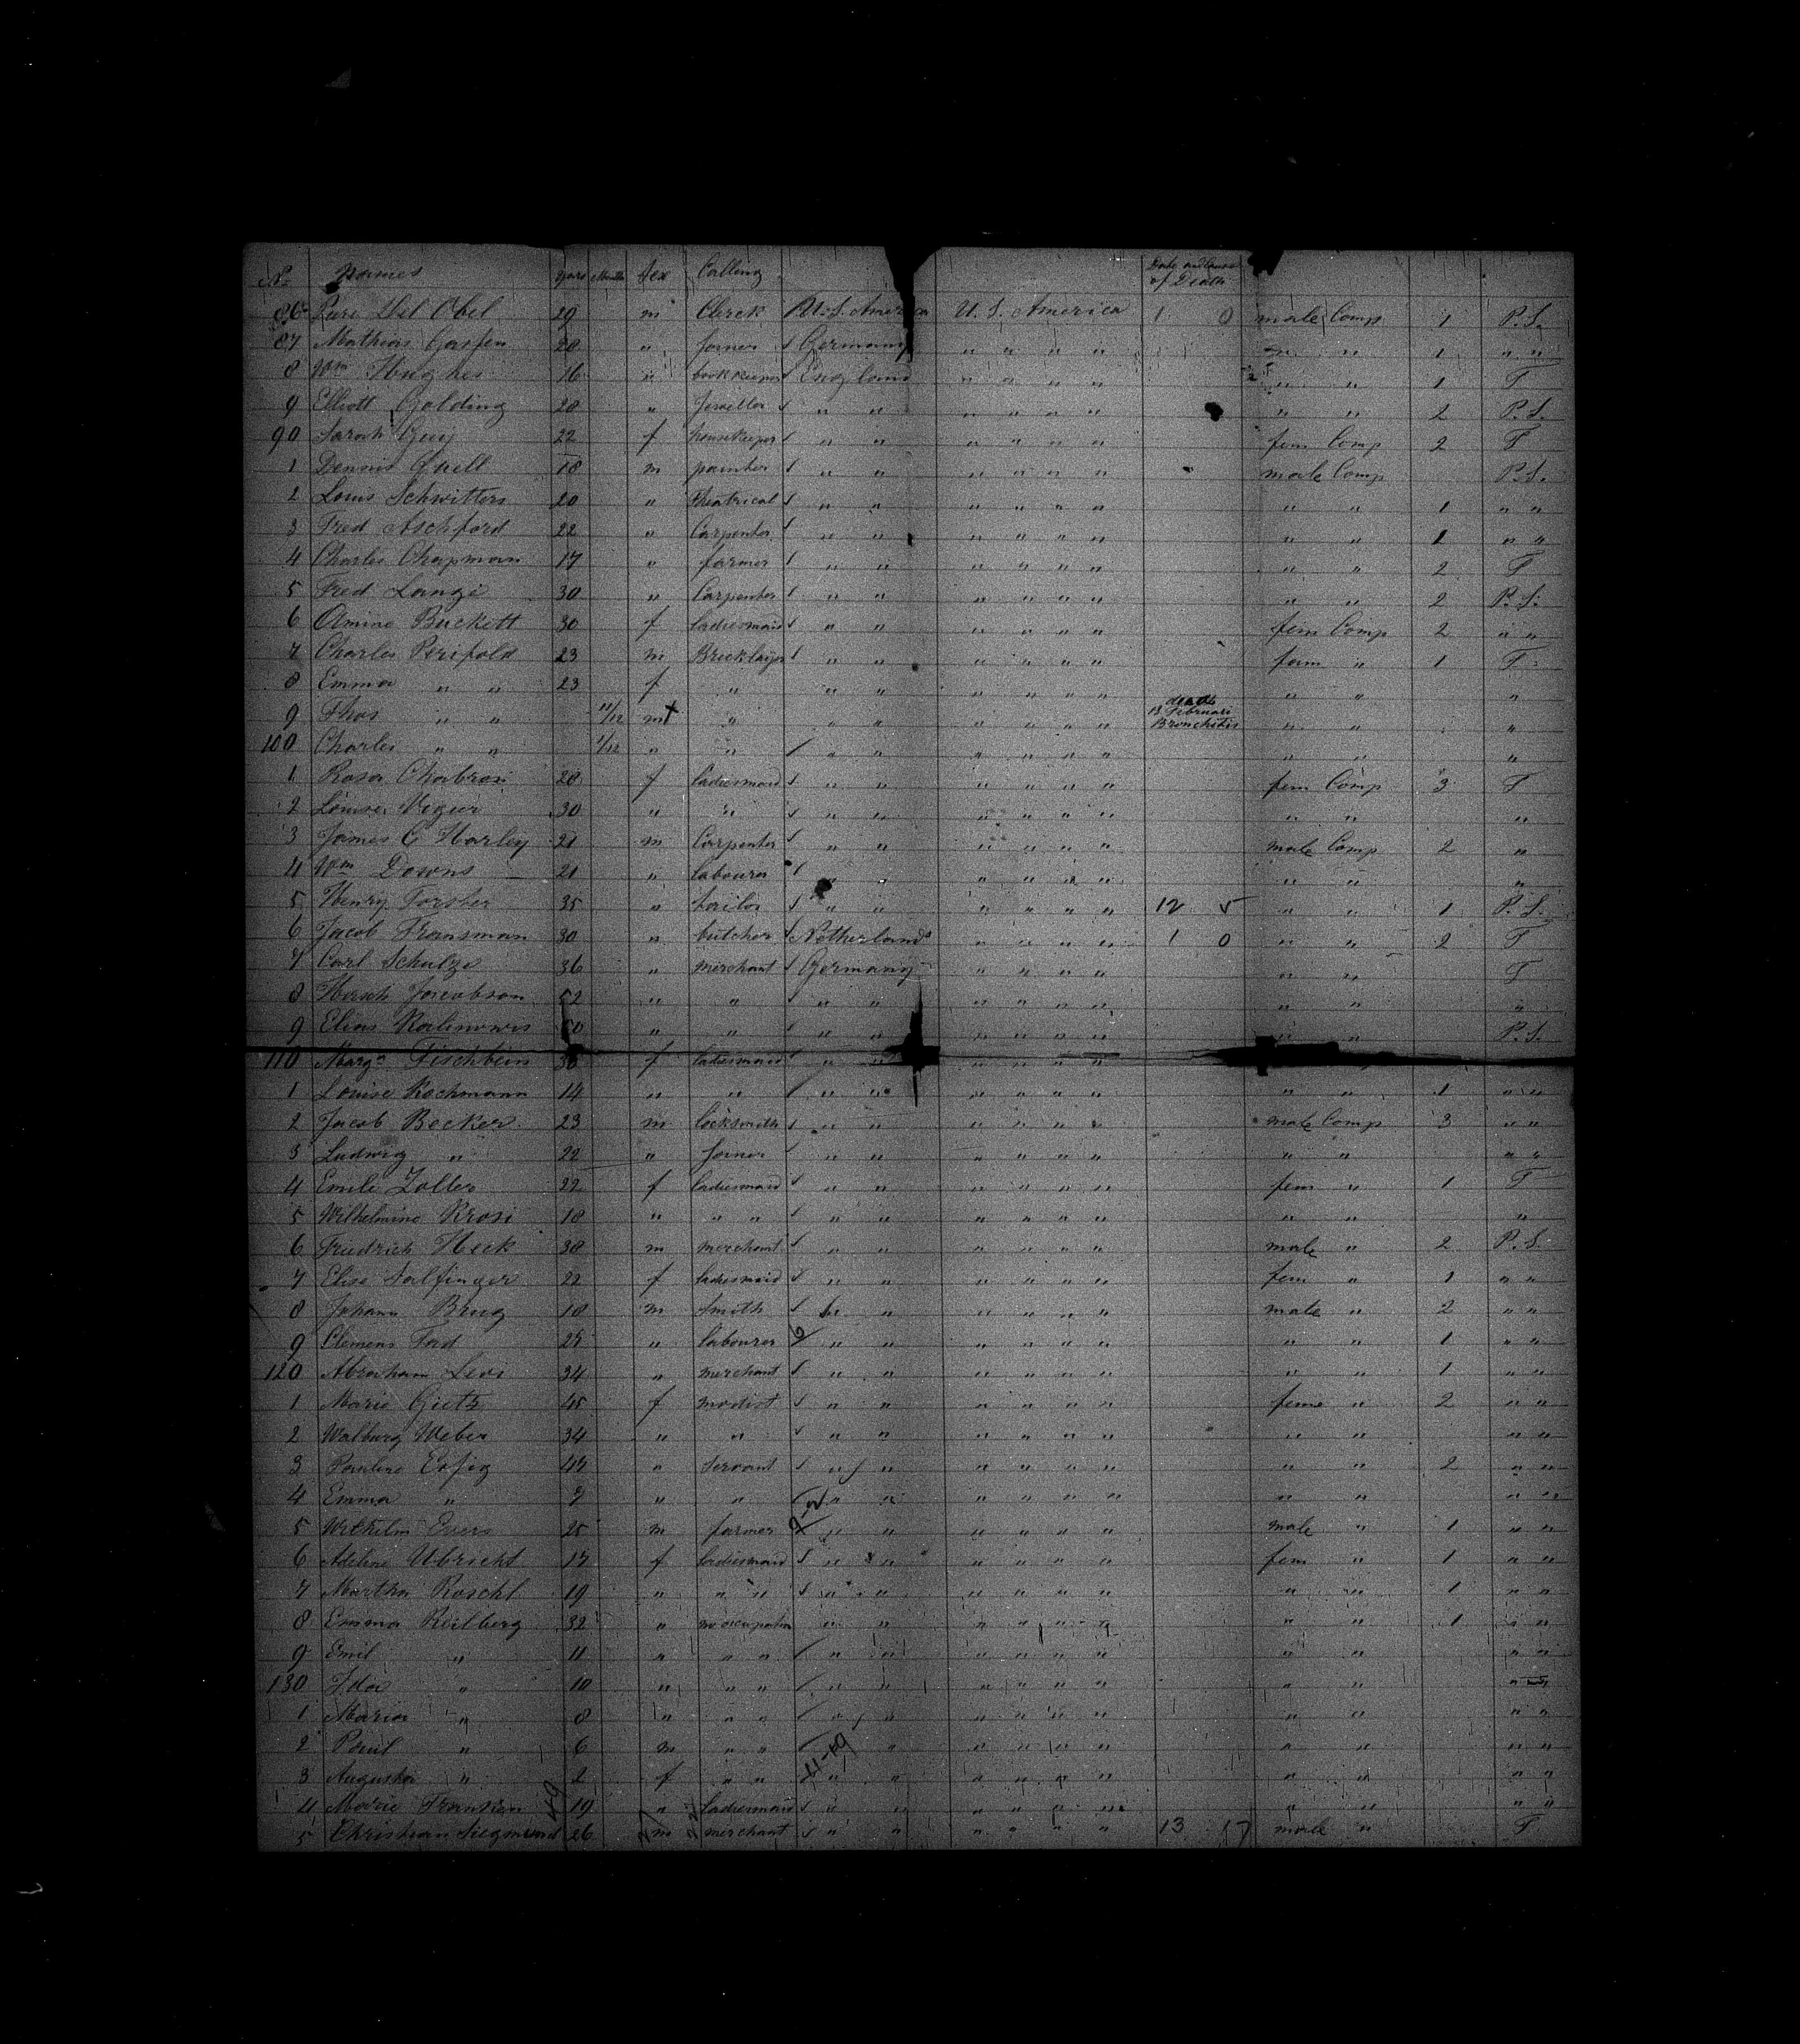 No. Names Years Months Sex Calling Date and Cause of Death
86 Del Obel 29 m Clerk U.S. America U.S. America 1 0 male Comp 1 P.S.
87 Mathias 28 " Germany " " " " " " 1 " "
8 Wm Hughes 16 " bookkeeper England " " " " " " 1 T
9 Elliott Golding 28 " Jeweller " " " " " " " " 2 P.S.
90 Sarah Guy 22 f housekeeper " " " " " " fem Comp 2 T
1 Dennis Quell 18 m painter " " " " " " male Comp P.S.
2 Louis Schwitters 20 " theatrical " " " " " " " " 1 " "
3 Fred Aschford 22 " Carpenter " " " " " " " " 1 " "
4 Charles Chapman 17 " farmer " " " " " " " " 2 T
5 Fred Lange 30 " Carpenter " " " " " " " " 2 P.S.
6 Amine Buckett 30 f ladiesmaid " " " " " " fem Comp 2 " "
7 Charles 23 m Bricklayer " " " " " " fam " 1 T
8 Emma " " 23 f " " " " " " " " " "
9 Thos " " 11/12 m † " " " " " " " death 13 Februari Bronchitis " " "
100 Charles " " 1/12 " " " " " " " " " " "
1 Rosa 28 f ladiesmaid " " " " " " fem Comp 3 T
2 Louise 30 " " " " " " " " " " "
3 James G Harley 21 m Carpenter " " " " " " male Comp 2 "
4 Wm Downs 21 " labourer " " " " " " " " "
5 Henry 35 " tailor " " " " " " 12 5 " " 1 P.S.
6 Jacob Fransman 30 " butcher Netherlands " " " " 1 0 " " 2 T
7 Carl Schulze 36 " merchant Germany " " " " " " T
8 Hirsch Jacobson 52 " " " " " " " " " " "
9 Elias 50 " " " " " " " " " " P.S.
110 Marga Fischbein 30 f ladiesmaid " " " " " "
1 Louise Kochmann 14 " " " " " " " " " " 1 " "
2 Jacob Becker 23 m locksmith " " " " " " male Comp 3 " "
3 Ludwig " 22 " " " " " " " " " " "
4 Emile Zoller 22 f ladiesmaid " " " " " " fem " 1 T
5 Wilhelmine Krosi 18 " " " " " " " " " " " "
6 Friedrich Heck 38 m merchant " " " " " " male " 2 P.S.
7 Elise 22 f ladiesmaid " " " " " " fem " 1 " "
8 Johann Brug 18 m Smith " " " " " male " 2 " "
9 Clemens 25 " labourer " " " " " " " " 1 " "
120 Abraham Levi 34 " merchant " " " " " " " " 1 " "
1 Marie Gietz 45 f modist " " " " " " feme " 2 " "
2 Walburg Weber 34 " " " " " " " " " " " "
3 Pauline 47 " Servant " " " " " " " " 2 " "
4 Emma " 7 " " " " " " " " " " " "
5 Wilhelm Evers 25 m farmer " " " " " " male " 1 " "
6 Adeline Ubricht 17 f ladiesmaid " " " " " " fem " 1 " "
7 Martha Roschl 19 " " " " " " " " " " " 1 " "
8 Emma Reilberg 32 " no occupation " " " " " " " " 1 " "
9 Emil " 11 " " " " " " " " " " " " "
130 Ida " 10 " " " " " " " " " " " " "
1 Maria " 8 " " " " " " " " " " " " "
2 Paul " 6 m " " " " " " " " " " "
3 Augusta " 2 f " " " " " " " " " " " "
4 Marie 19 " ladiesmaid " " " " " " " " " "
5 Christian Siegmund 26 m merchant " " " " " " 13 17 male " T